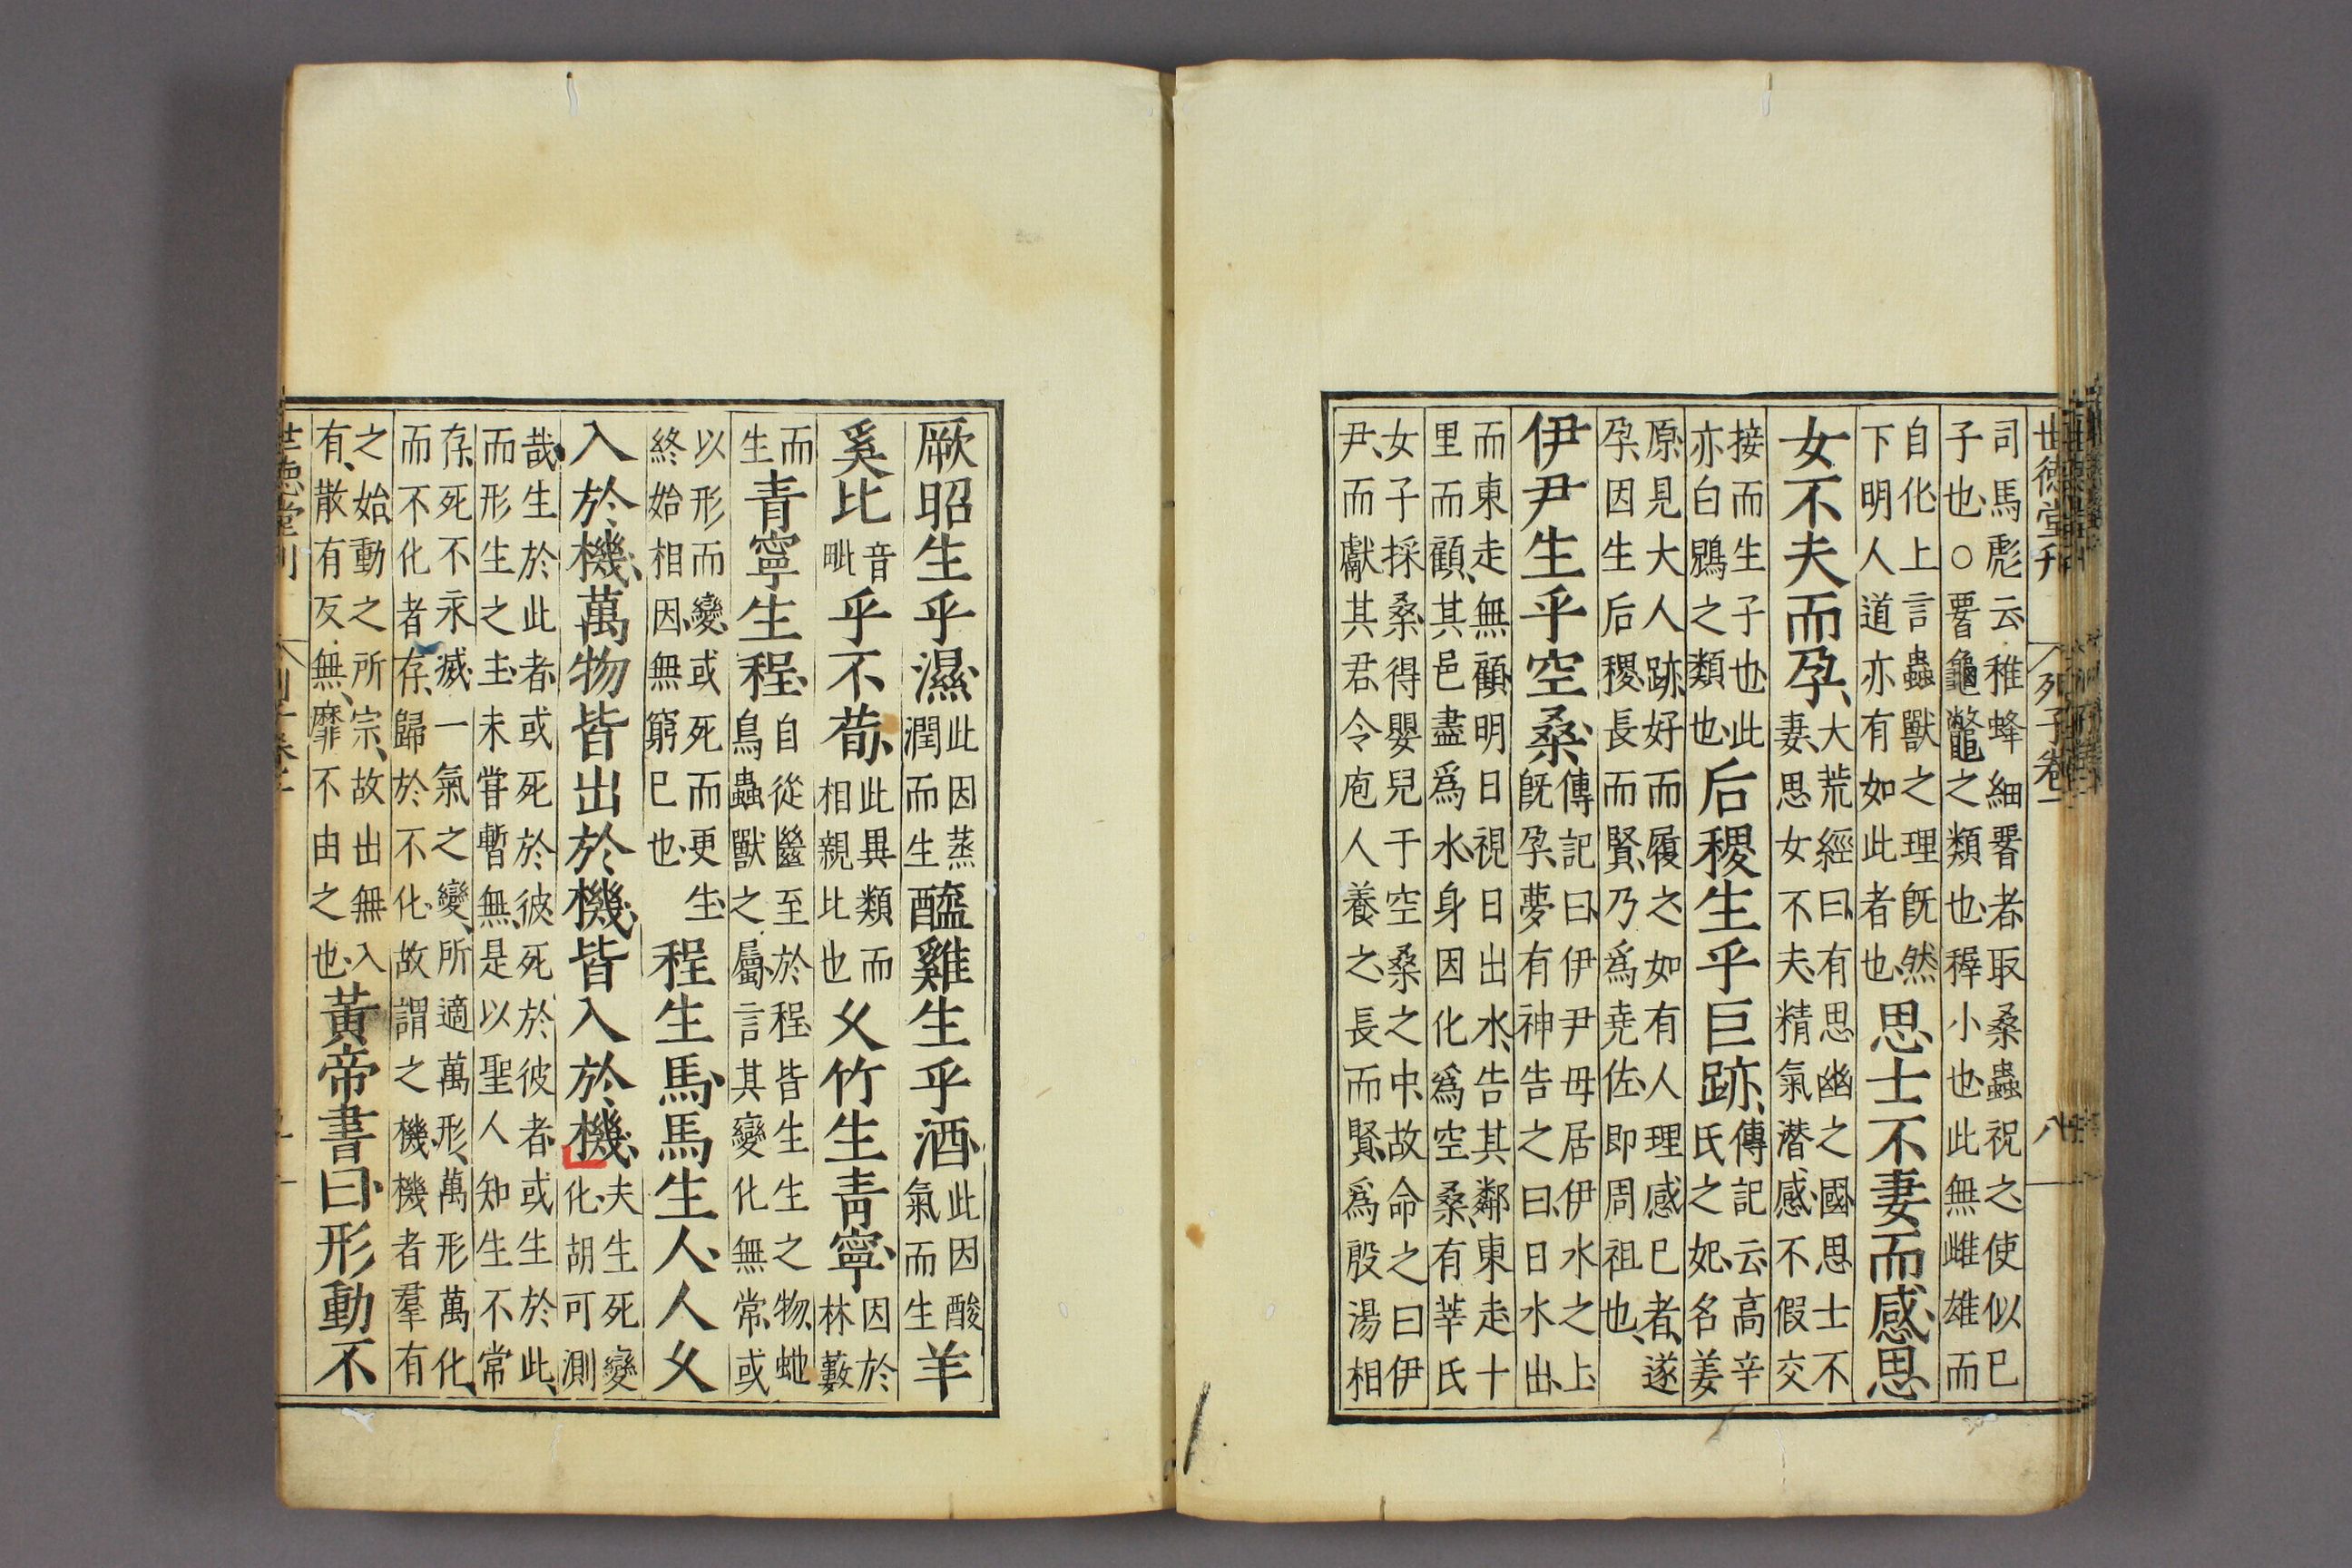 世德堂刊 列子卷一 八
司馬彪云稚蜂細者取桑蟲祝之使似已
子也○龜鼈之類也稺小也此無雌雄而
自化上言蟲獸之理旣然
下明人道亦有如此者也
思士不妻而感思
女不夫而孕
大荒經曰有思幽之國思士不
妻思女不夫精氣潜感不假交
接而生子也此
亦白鶂之類也
后稷生乎巨跡
傳記云高辛
氏之妃名姜
原見大人跡好而履之如有人理感已者遂
孕因生后稷長而賢乃爲堯佐即周祖也
伊尹生乎空桑
傳記曰伊尹母居伊水之上
旣孕夢有神告之曰日水出
而東走無顧明日視日出水告其鄰東走十
里而顧其邑盡爲水身因化爲空桑有莘氏
女子採桑得嬰兒于空桑之中故命之曰伊
尹而獻其君令庖人養之長而賢爲殷湯相
厥昭生乎濕
此因蒸
潤而生
醯雞生乎酒
此因酸
氣而生
羊
奚比
音
毗
乎不荀
此異類而
相親比也
乂竹生青寧
因於
林藪
而
生
青寧生程
自從㡭至於程皆生生之物虵
鳥蟲獸之屬言其變化無常或
以形而變或死而更生
終始相因無窮已也
程生馬馬生人人乂
入於機萬物皆出於機皆入於機
夫生死變
化胡可測
哉生於此者或死於彼死於彼者或生於此
而形生之主未甞暫無是以聖人知生不常
存死不永滅一氣之變所適萬形萬形萬化
而不化者存歸於不化故謂之機機者羣有
之始動之所宗故出無入
有散有反無靡不由之也
黃帝書曰形動不
世德堂刊